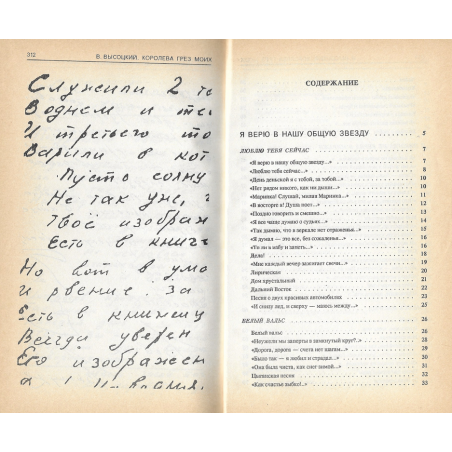 312
В ВЫСОЦКИЙ. КОРОЛЕВА ГРЕЗ МОИХ
Служили 2 то
В одном и то
И третьего то
Варили в кот
Пусто солну
Не так уж, ч
Твоё изображ
Есть в книге
Но вот в умо
И рвение за
Есть в книжку
Всегда уверен
Его изображен
СОДЕРЖАНИЕ
Я ВЕРЮ В НАШУ ОБЩУЮ ЗВЕЗДУ 5
ЛЮБЛЮ ТЕБЯ СЕЙЧАС 7
«Я верю в нашу общую звезду...» 7
«Люблю тебя сейчас...»
«День-деньской я с тобой, за тобой...»
«Нет рядом никого, как ни дыши...»
«Маринка! Слушай, милая Маринка...»
«В восторге я! Душа поет...»
«Поздно говорить и смешно...»
«Я все чаще думаю о судьях...»
«Так дымно, что в зеркале нет отраженья...»
«Я думал — это все, без сожаленья...»
«То ли в избу и запеть...»
Дело!
«Мне каждый вечер зажигает свечи...»
Лирическая
Дом хрустальный
Дальний Восток
Песня о двух красивых автомобилях
«И снизу лед, и сверху — маюсь между...»
БЕЛЫЙ ВАЛЬС 26
Белый вальс 26
«Неужели мы заперты в замкнутый круг?...» 28
«Дорога, дорога — счета нет шагам...» 29
«Было так — я любил и страдал...» 30
«Она была чиста, как снег зимой...» 31
Цыганская песня 32
«Как счастье зыбко!...» 33